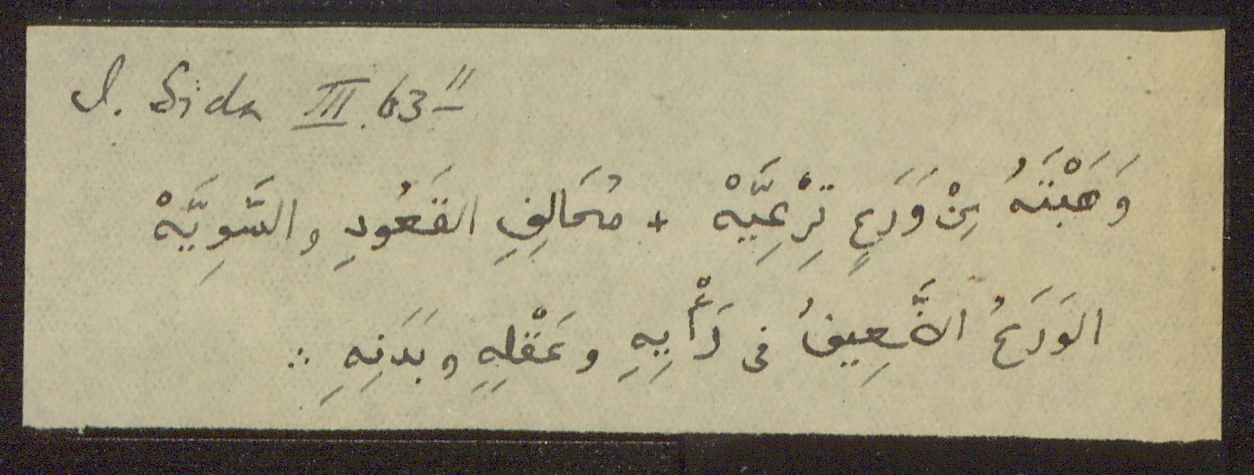 I. Sida III. 63 11
وَهَبْتَهُ مِنْ وَرَعٍ تِرْعِيَّهْ + مُحَالِفِ القَعُودِ والسَّوِيَّهْ
الوَرَعُ الضَّعِيفُ فى رَأْيِهِ وعَقْلِهِ وبَدَنِهِ ∴